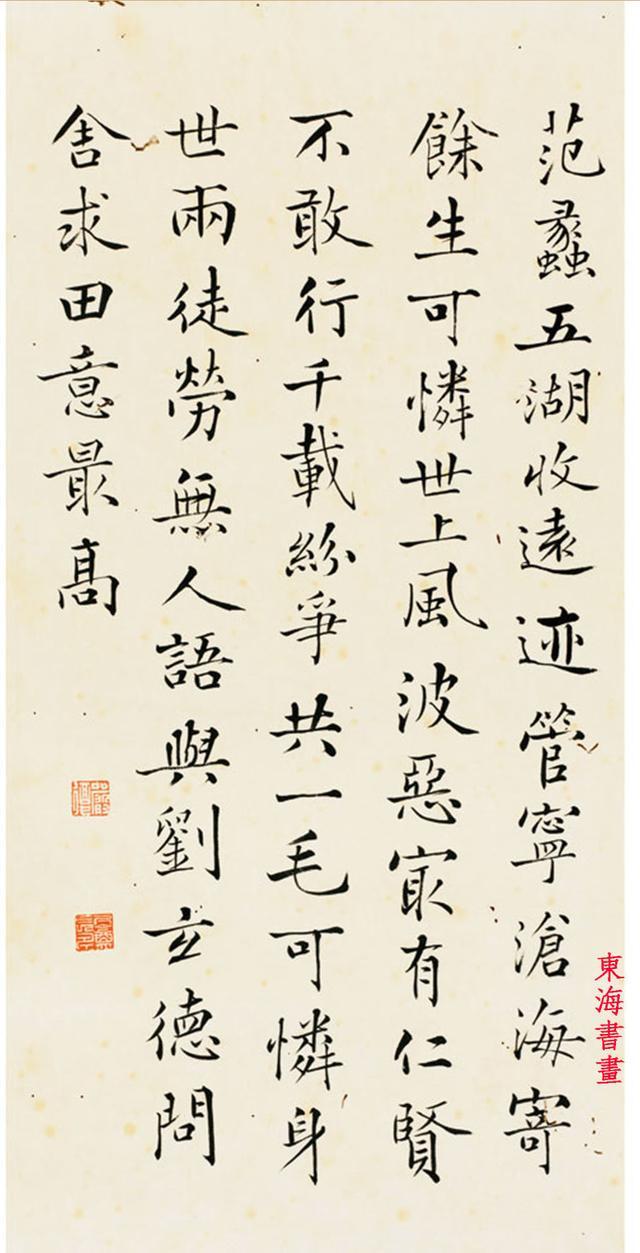 范蠡五湖收遠迹管寧滄海寄
餘生可憐世上風波惡㝡有仁賢
不敢行千載紛爭共一毛可憐身
世兩徒勞無人語與劉玄德問
舍求田意最髙
東海書畫